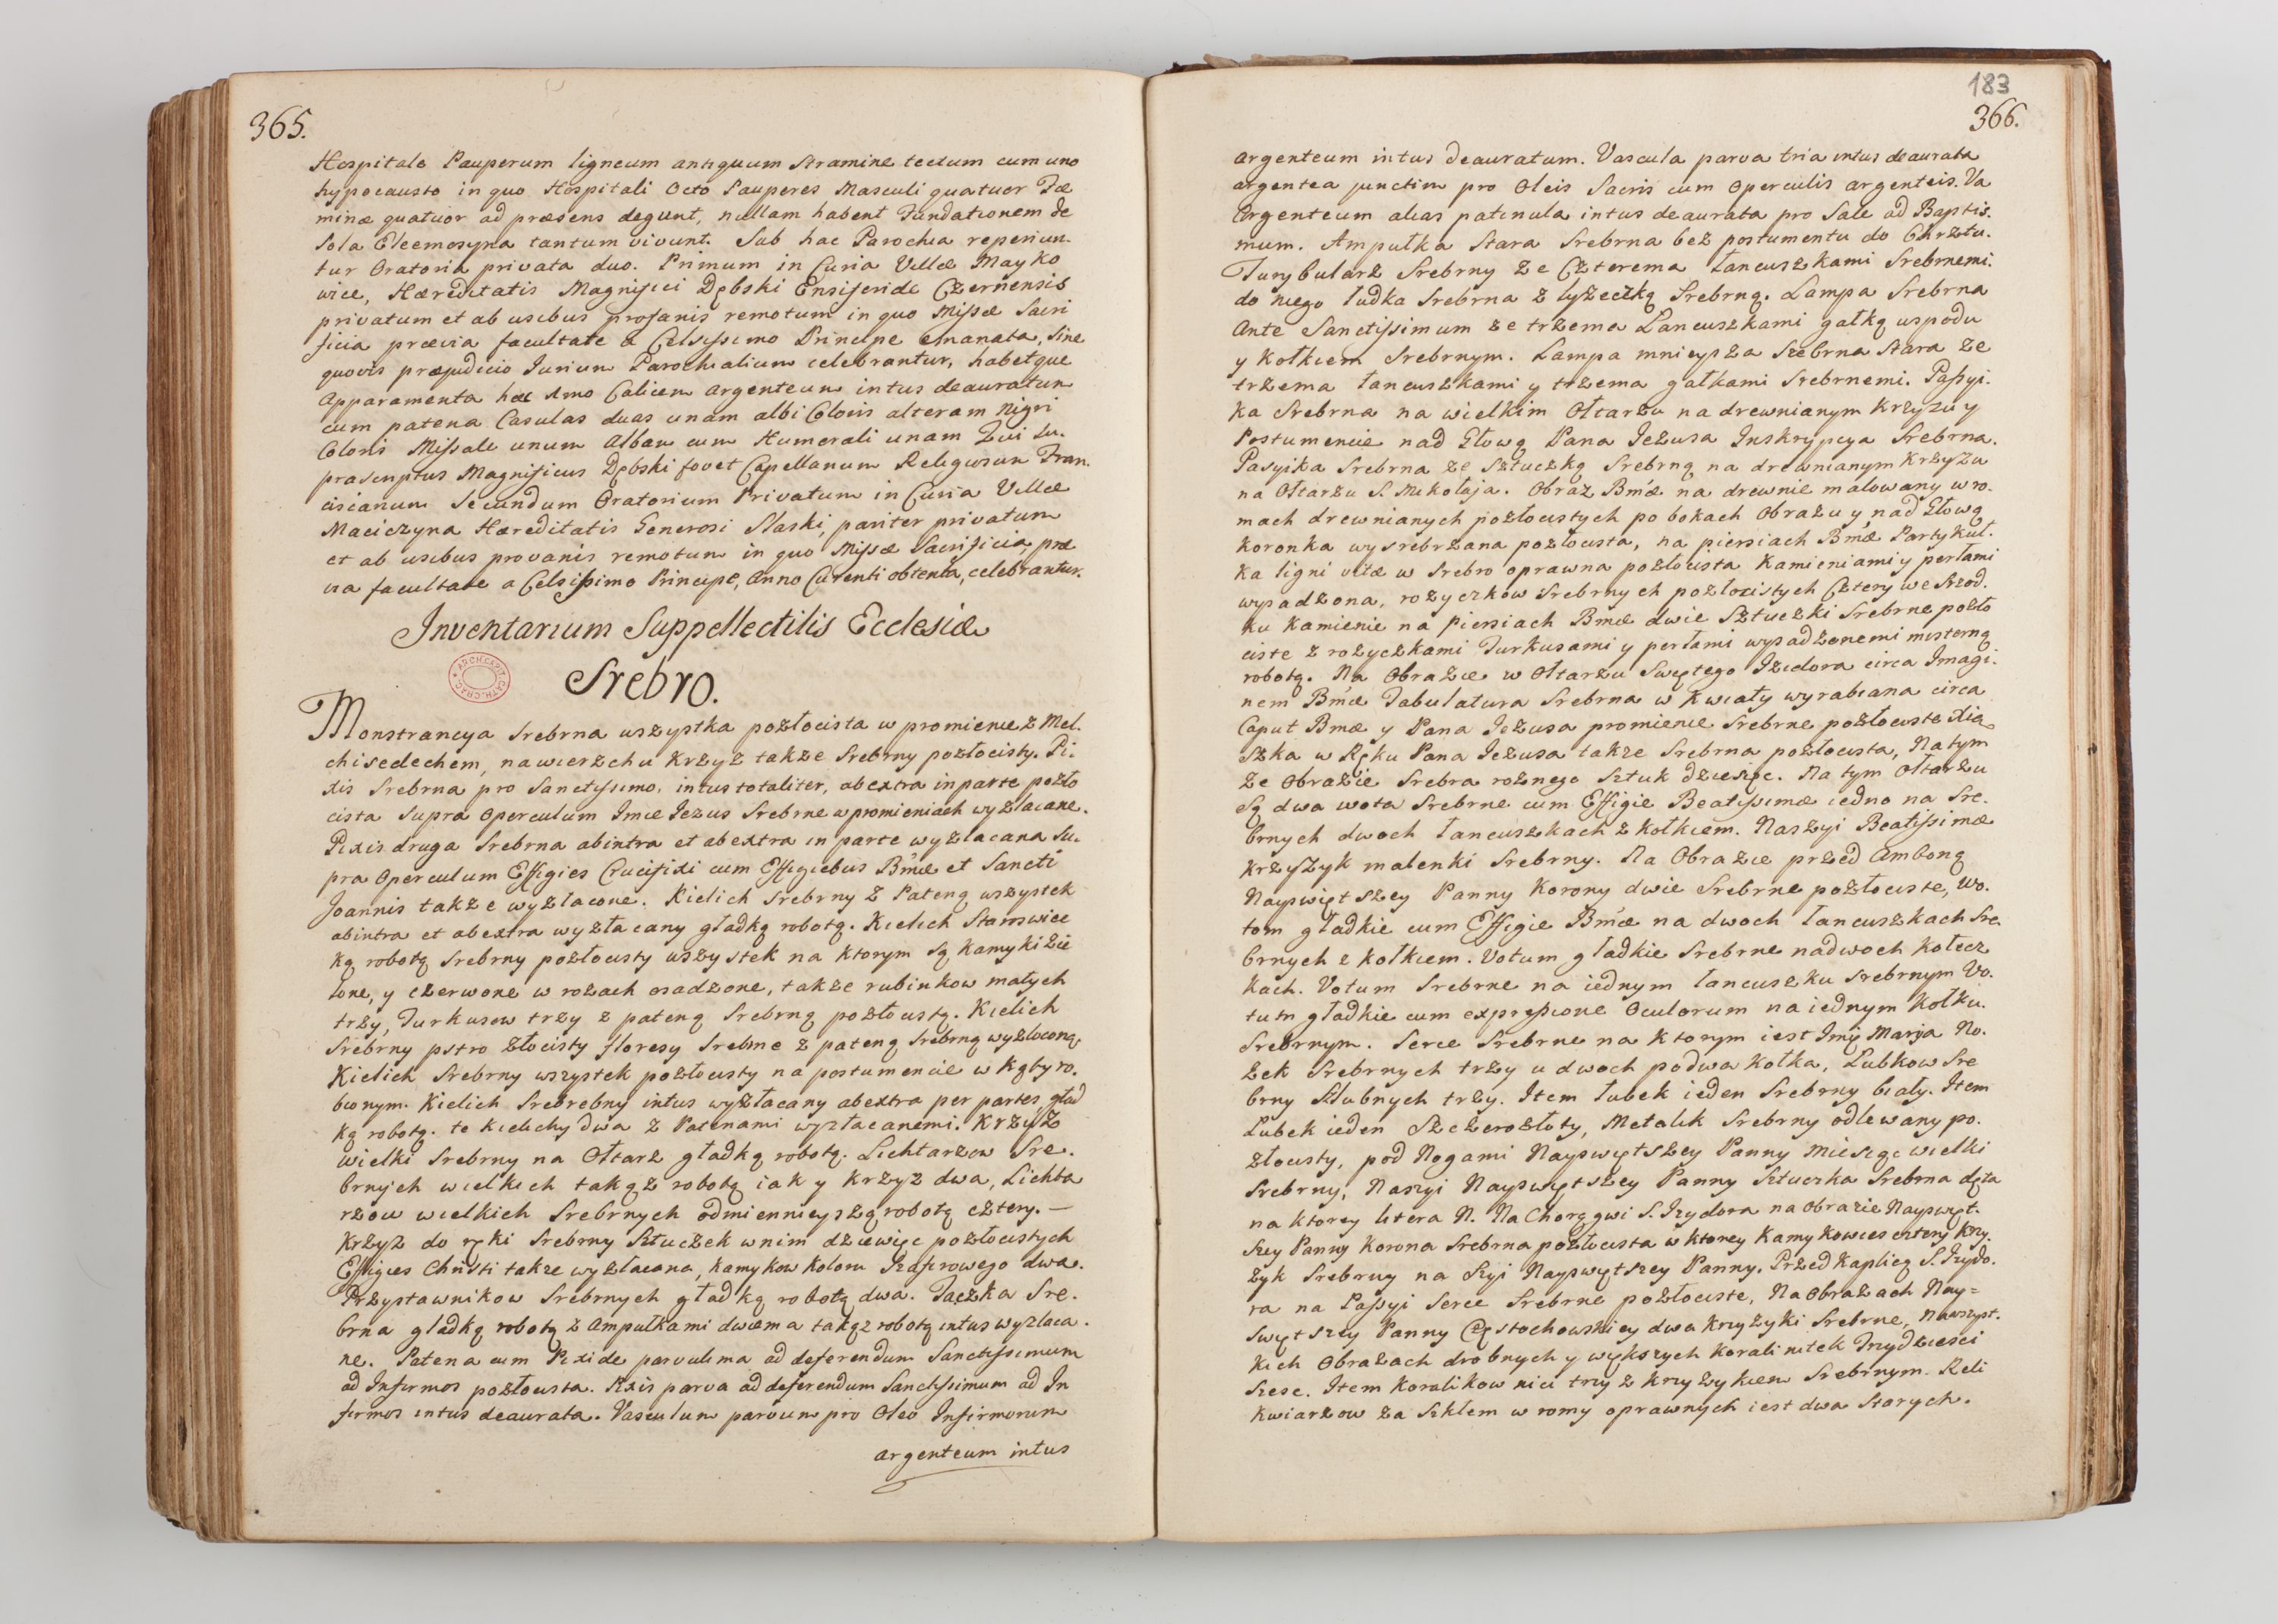 365.
Hospitale Pauperum ligneum antiquum Stramine tectum cum uno
hypocausto in quo Hospitali Octo Pauperes Masculi quatuor Fæ
minæ quatuor ad præsens degunt, nullam habent Fundationem de
sola Eleemosyna tantum vivunt. Sub hac Parochia reperiun.
tur Oratoria privata duo. Primum in Curia Villæ Mayko
wice, Hæreditatis Magnifici Dębski Ensiferide Czernensis
privatum et ab usibus profanis remotum in quo Missæ Sacri
ficia prævia facultate a Celsissimo Principe emanata, sine
quovis præjudicio Jurium Parochialium celebrantur, habetque
Apparamenta hæc Imo Calicem argenteum intus deauratum
cum patena Casulas duas unam albi Coloris alteram Nigri
Coloris Missale unum Albam cum Humerali unam Tui Su.
prascriptus Magnificus Dębski fovet Capellanum Religiosum Fran.
ciscanum Secundum Oratorium Privatum in Curia Villæ
Maciczyna Hæreditatis Generosi Slaski, pariter privatum
et ab usibus provanis remotum in quo Missæ Sacrificia præ
via facultate a Celsissimo Principe, Anno Currenti obtenta, celebrantur.
Inventarium Suppellectilis Ecclesiæ
ARCH. CAPIT. CATH. CRAC.
Srebro.
Monstrancya Srebrna wszystka pozłocista w promienie z Mel.
chisedechem, na wierzchu Krzyz takze Srebrny pozłocisty. Pi.
xis Srebrna pro Sanctissimo, intus totaliter, ab extra in parte pozło
cista Supra Operculum Imie Jezus Srebrne w promieniach wyzłacane.
Pixis druga Srebrna abintra et ab extra in parte wyzłacana Su.
pra Operculum Effigies Crucifixi cum Effigiebus Bmæ et Sancti
Joannis takze wyzłacone. Kielich Srebrny z Pateną wszystek
abintra et ab extra wyzłacany gładką robotą. Kielich Stanswice
ką robotą Srebrny pozłocisty wszystek na ktorym są Kamyki Zie
lone, y czerwone w rozach osadzone, takze rubinkow małych
trzy, Turkusow trzy z pateną Srebrną pozłocistą. Kielich
Srebrny pstro złocisty floresy Srebrne z pateną Srebrną wyzłoconą.
Kielich Srebrny wszystek pozłocisty na postumencie w Kąty ro.
bionym. Kielich Srebrebny intus wyzłacany abextra per partes gład
ką robotą. te Kielichy dwa z Patenami wyzłacanemi. Krzyż
wielki Srebrny na Ołtarz gładką robotą. Lichtarzow Sre.
brnych wielkich takąz robotą iak y Krzyz dwa, Lichta
rzow wielkich Srebrnych odmiennieyszą robotą cztery.—
Krzyz do ręki Srebrny Sztuczek w nim dziewięc pozłocistych
Effigies Christi takze wyzłacana, Kamykow Koloru Szafirowego dwa.
Przystawnikow Srebrnych gładką robotą dwa. Taczka Sre.
brna gładką robotą z Ampułkami dwiema takąz robotą intus wyzłaca.
ne. Patena cum Pixide parvulima ad deferendum Sanctissimum
ad Infirmos pozłocista. Pixis parva ad deferendum Sanctissimum ad In
firmos intus deaurata. Vasculum parvum pro Oleo Infirmorum
argenteum intus
183
366.
argenteum intus deauratum. Vascula parva tria intus deaurata
argentea junctim pro Oleis Sacris cum Operculis argenteis. Va
Argenteum alias patinula intus deaurata pro Sale ad Baptis.
mum. Ampułka Stara Srebrna bez postumentu do Chrztu.
Turybularz Srebrny ze Czterema łancuszkami Srebrnemi.
do niego łudka Srebrna z łyzeczką Srebrną. Lampa Srebrna
Ante Sanctissimum ze trzema Lancuszkami gałką uspodu
y kołkiem Srebrnym. Lampa mnieysza Srebrna Stara ze
trzema łancuszkami y trzema gałkami Srebrnemi. Passyi.
ka Srebrna na wielkim Ołtarzu na drewnianym Krzyzu y
Postumencie nad Głową Pana Jezusa Inskrypcya Srebrna.
Pasyika Srebrna ze Sztuczką Srebrną na drewnianym Krzyzu
na Ołtarzu S. Mikołaja. Obraz Bmæ na drewnie malowany w ro.
mach drewnianych pozłocistych po bokach Obrazu y nad Głową
Koronka wysrebrzana pozłocista, na piersiach Bmæ Partykuł.
ka ligni vitæ w Srebro oprawna pozłocista Kamieniami y perłami
wysadzona, rozyczkow Srebrnych pozłocistych Cztery we Szrod.
ku Kamienie na piersiach Bmæ dwie Sztuczki Srebrne pozło
ciste z rozyczkami Turkusami y perłami wysadzonemi misterną
robotą. Na Obrazie w Ołtarzu Swiętego Izidora circa Imagi.
nem Bmæ Tabulatura Srebrna w Kwiaty wyrabiana circa
Caput Bmæ y Pana Jezusa promienie Srebrne pozłociste Xia
szka w Ręku Pana Jezusa takze Srebrna pozłocista, Na tym
ze Obrazie Srebra roznego Sztuk dziesięc. Na tym Ołtarzu
Są dwa wota Srebrne cum Effigie Beatissimæ iedno na Sre.
brnych dwoch łancuszkach z kołkiem. Na szyi Beatissimæ
Krzyzyk malenki Srebrny. Na Obrazie przed Amboną
Nayswiętszey Panny Korony dwie Srebrne pozłociste, Wo.
tom gładkie cum Effigie Bmæ na dwoch łancuszkach Sre.
brnych z kołkiem. Votum gładkie Srebrne na dwoch kołecz
kach. Votum Srebrne na iednym łancuszku Srebrnym Vo.
tum gładkie cum expressione Oculorum na iednym Kołku.
Srebrnym. Serce Srebrne na ktorym iest Imię Marja No.
zek Srebrnych trzy u dwoch po dwa Kołka, Lubkow Sre
brny Slubnych trzy. Item łubek ieden Srebrny biały. Item
Lubek ieden Szczerozłoty, Metalik Srebrny odlewany po.
złocisty, pod Nogami Nayswiętszey Panny Miesiąc wielki
Srebrny, Na szyi Nayswiętszey Panny Sztuczka Srebrna dęta
na ktorey litera N. Na Chorągwi S. Izydora na Obrazie Nayswięt.
szey Panny Korona Srebrna pozłocista w ktorey Kamykow ies cztery Krzy.
zyk Srebrny na Szyi Nayswiętszey Panny. Przed Kaplicą S. Izydo.
ra na Passyi Serce Srebrne pozłociste, Na Obrazach Nay=
swiętszey Panny Częstochowskiey dwa Krzyzyki Srebrne, Na wszyst.
kich Obrazach drobnych y większych Korali nitek Trzydziesci
Szesc. Item Koralikow nici trzy z Krzyzykiem Srebrnym. Reli
kwiarzow za Szklem w romy oprawnych iest dwa Starych.